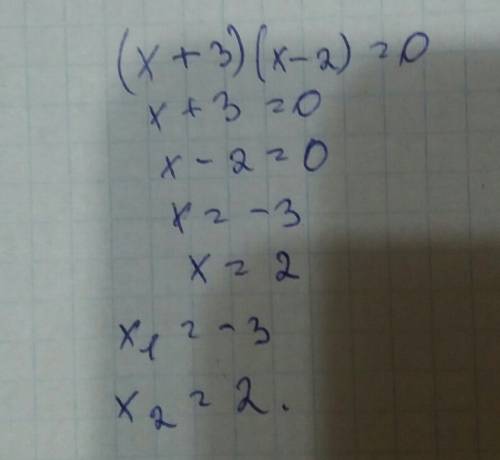 (x + 3)(x - 2) = 0
x + 3 = 0
x - 2 = 0
x = -3
x = 2
x₁ = -3
x₂ = 2.